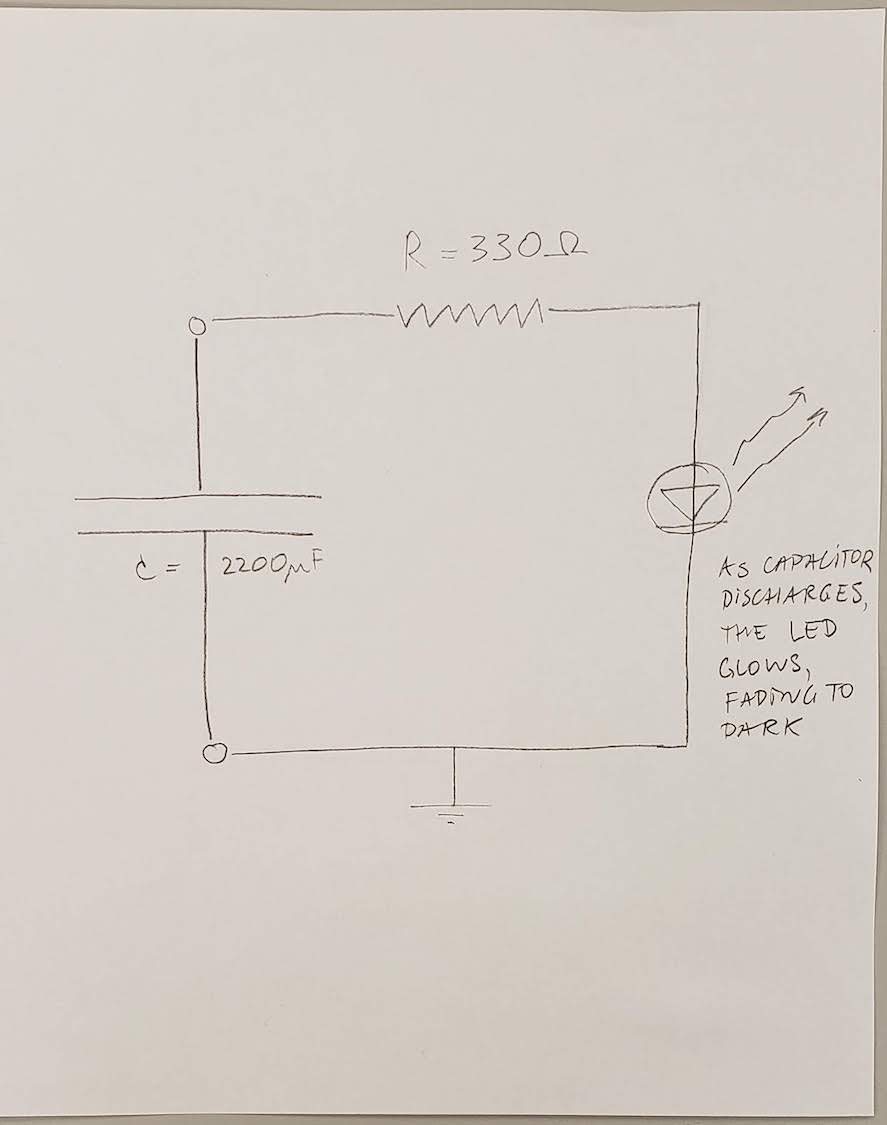 R = 330Ω
C = 2200μF
AS CAPACITOR
DISCHARGES,
THE LED
GLOWS,
FADING TO
DARK